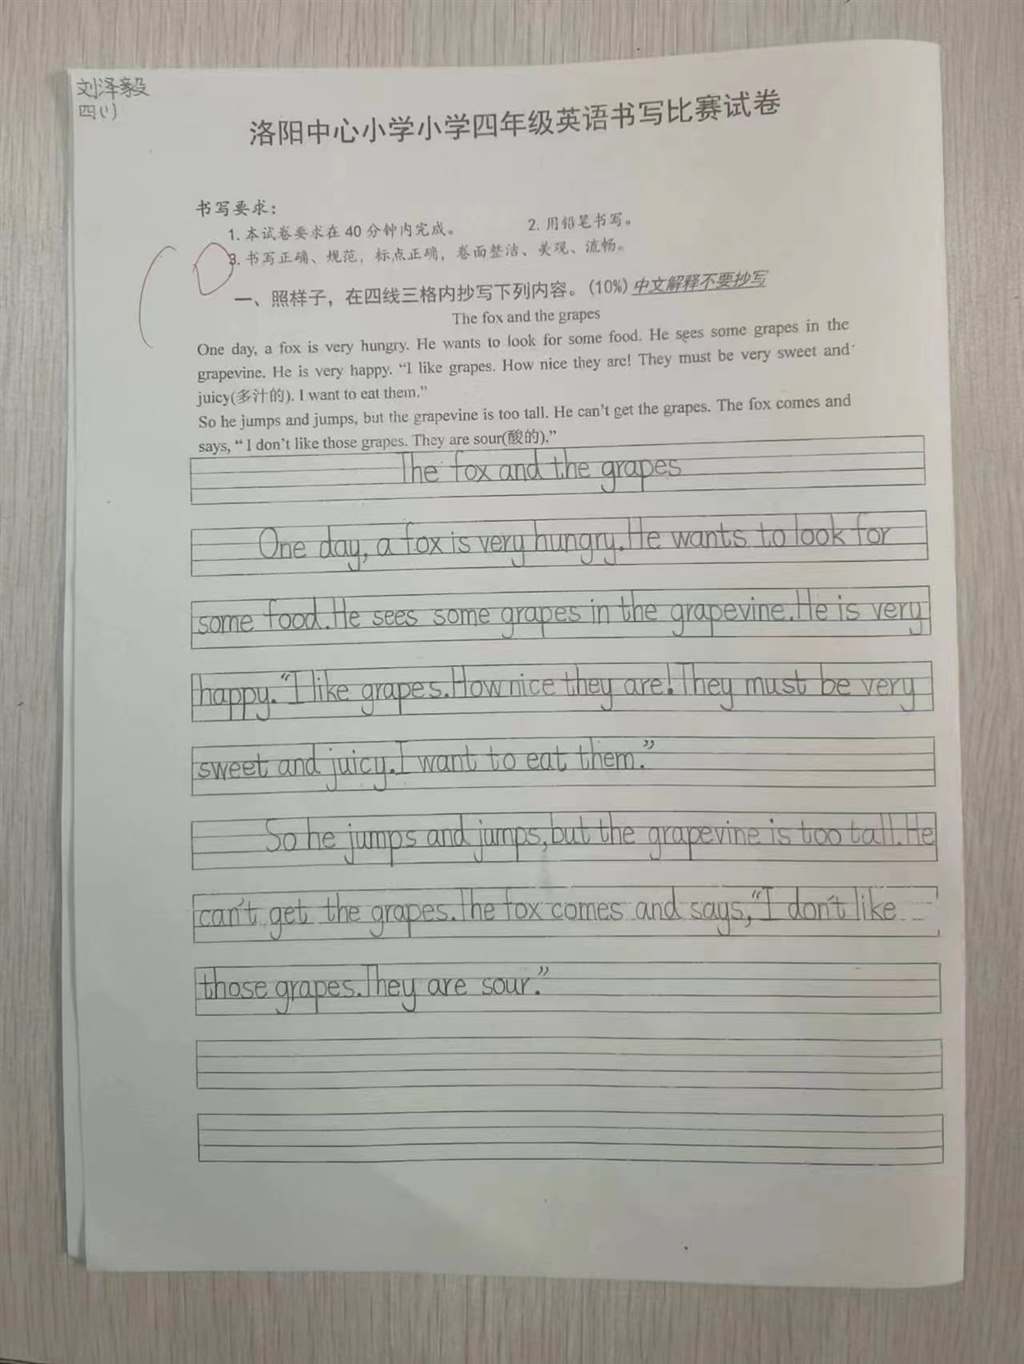 刘泽毅
四(1)
洛阳中心小学小学四年级英语书写比赛试卷
书写要求：
1. 本试卷要求在 40 分钟内完成。 2. 用铅笔书写。
3. 书写正确、规范，标点正确，卷面整洁、美观、流畅。
一、照样子，在四线三格内抄写下列内容。(10%) 中文解释不要抄写
The fox and the grapes
One day, a fox is very hungry. He wants to look for some food. He sees some grapes in the
grapevine. He is very happy. “I like grapes. How nice they are! They must be very sweet and
juicy(多汁的). I want to eat them.”
So he jumps and jumps, but the grapevine is too tall. He can’t get the grapes. The fox comes and
says, “ I don’t like those grapes. They are sour(酸的).”
The fox and the grapes
One day, a fox is very hungry. He wants to look for
some food. He sees some grapes in the grapevine. He is very
happy. “I like grapes. How nice they are! They must be very
sweet and juicy. I want to eat them.”
So he jumps and jumps, but the grapevine is too tall. He
can’t get the grapes. The fox comes and says, “I don’t like
those grapes. They are sour.”